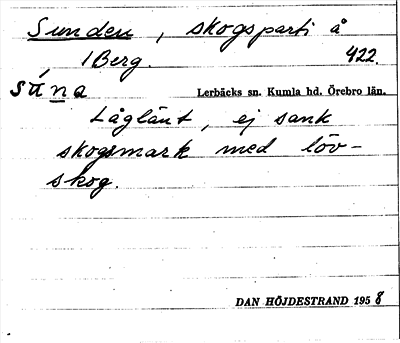 Sunden, skogsparti å
1 Berg. 422.
súna Lerbäcks sn. Kumla hd. Örebro län.
Låglänt, ej sank
skogsmark med löv-
skog.
DAN HÖJDESTRAND 1958